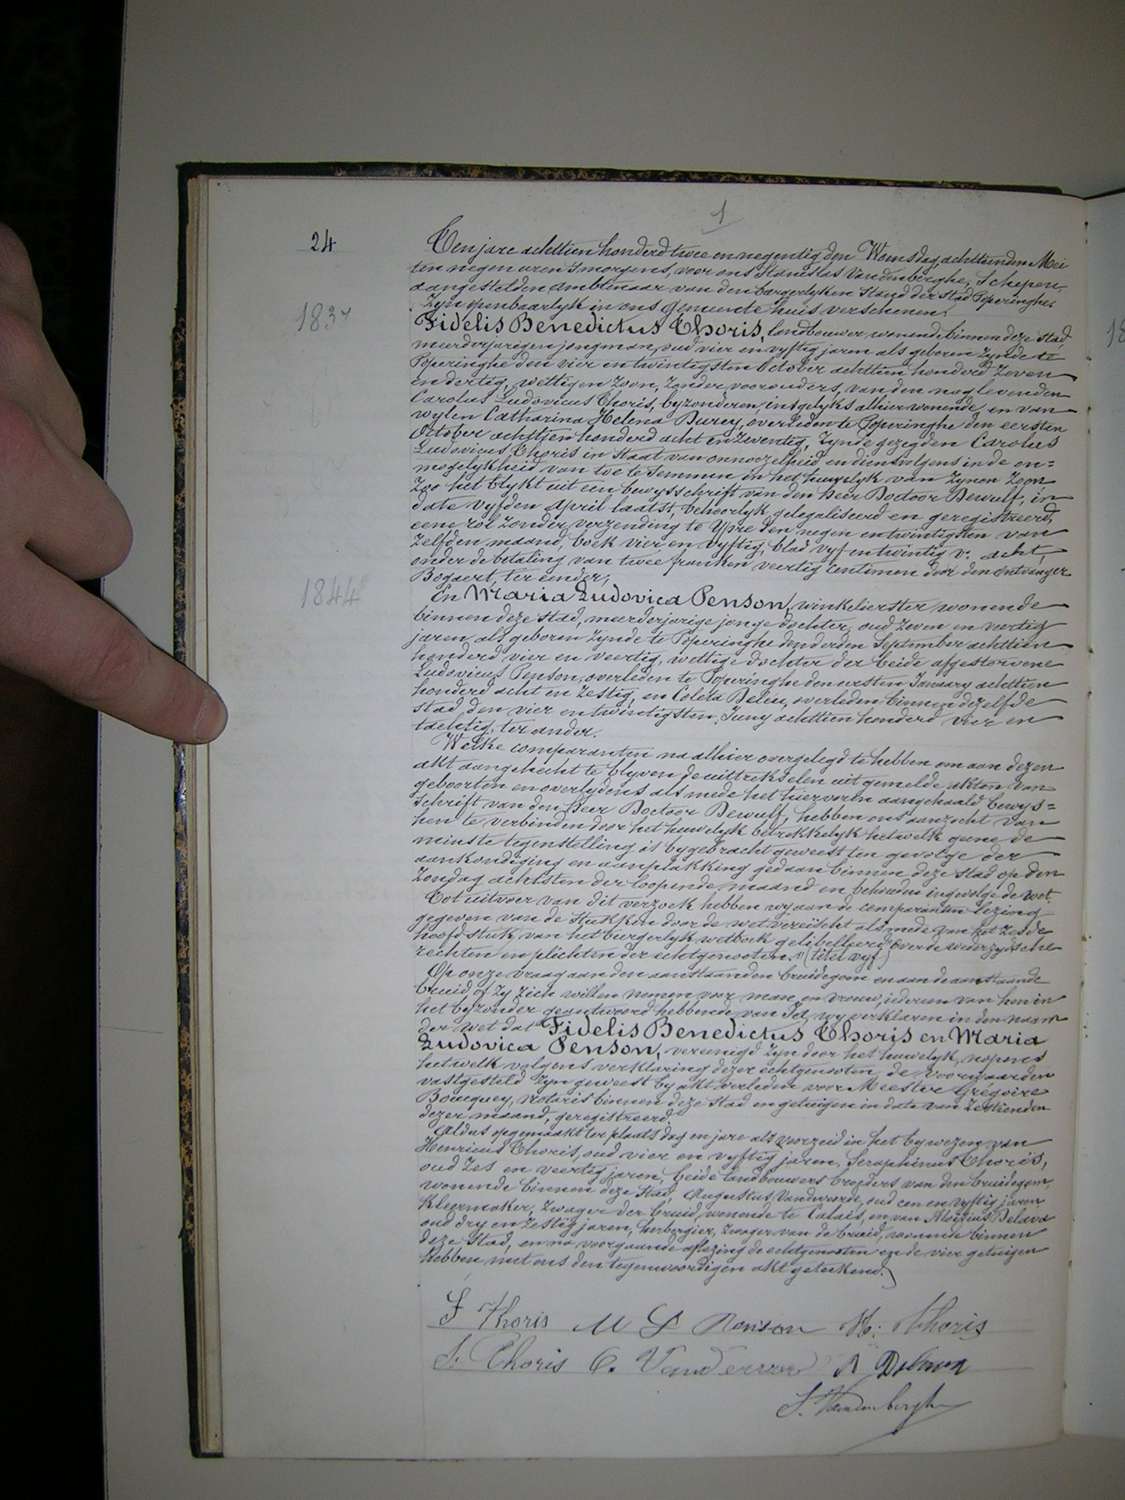 1
24
Ten jare achttien honderd twee en negentig den Woensdag achttienden Mei
ten negen uren s'morgens, voor ons Stanislas Vandenberghe, Schepen,
aangestelden ambtenaar van den burgerlyken Stand der Stad Poperinghe
Zyn openbaarlyk in ons gemeente huis verschenen:
1837
Fidelis Benedictus Thoris, landbouwer, wonende binnen deze stad,
meerderjarigen jongman, oud vier en vyftig jaren als geboren zynde te
Poperinghe den vier en twintigsten October achttien honderd Zeven
en dertig, wettigen zoon, zonder voorouders, van den nog levenden
Carolus Ludovicus Thoris, byzonderen, insgelyks alhier wonende, en van
wylen Catharina Helena Durey, overleden te Poperinghe den eersten
October achttien honderd acht en Zeventig, Zynde gezegden Carolus
Ludovicus Thoris in Staat van onnoozelheid en diensvolgens in de on=
mogelykheid van toe te Stemmen in het huwelyk van Zynen Zoon
Zoo het blykt uit een bewysschrift van den Heer Doctoor Dewulf, in
date vyfden April laatst, behoorlyk gelegaliseerd en geregistreerd,
eene rol zonder verzending te Ypre den negen en twintigsten van
Zelfden maand, boek vier en vyftig, blad vyf en twintig v. acht,
onder de betaling van twee franken veertig centimen door den ontvanger
Bogaert, ter eender,
1844
En Maria Ludovica Penson, winkelierster, wonende
binnen deze Stad, meerderjarige jonge dochter, oud Zeven en veertig
jaren, als geboren Zynde te Poperinghe den derden September achttien
honderd vier en veertig, wettige dochter der beide afgestorvene
Ludovicus Penson, overleden te Poperinghe den eersten January achttien
honderd acht en Zestig, en Coleta Beleu, overleden binnen dezelfde
stad den vier en twintigsten Juny achttien honderd vier en
tachtig, ter ander.
Welke comparanten na alhier overgelegd te hebben om aan dezen
akt aangehecht te blyven de uittrekselen uit gemelde akten van
geboorten en overlydens als mede het hiervoren aangehaald bewys=
schrift van den Heer Doctoor Dewulf, hebben ons aanzocht van
hen te verbinden door het huwelyk betrekkelyk hetwelk geene de
minste tegenstelling is bygebracht geweest ten gevolge der
aankondiging en aanplakking gedaan binnen deze Stad op den
Zondag achtsten der loopende maand en behouden ingevolge de wet.
Tot uitvoer van dit verzoek hebben wy aan de comparanten lezing
gegeven van de Stukken door de wet vereischt als mede van het Zesde
hoofdstuk van het burgerlyk wetboek gelibelleerd "over de wederzydsche
rechten en plichten der echtgenoten." (titel vyf.)
Op onze vraag aan den aanstaanden bruidegom en aan de aanstaande
bruid of Zy Zich willen nemen voor man en vrouw, iedereen van hen in
het byzonder geantwoord hebbende van Ja, wy verklaren in den naam
der wet dat Fidelis Benedictus Thoris en Maria
Ludovica Penson, vereenigd Zyn door het huwelyk, nopens
hetwelk volgens verklaring dezer echtgenoten, de voorwaarden
vastgesteld Zyn geweest by akt verleden voor Meester Grégoire
Boucquey, Notaris binnen deze Stad en getuigen in date van Zestienden
dezer maand, geregistreerd.
Aldus opgemaakt ter plaats, dag en jare als voorzeid in het bywezen van
Henricus Thoris, oud vier en vyftig jaren, Seraphinus Thoris,
oud Zes en veertig jaren, beide landbouwers broeders van den bruidegom,
wonende binnen deze Stad, Augustus Vandevoorde, oud een en vyftig jaren
Kleermaker, Zwager der bruid, wonende te Calais, en van Aloizius Delava
oud dry en Zestig jaren, herbergier, Zwager van de bruid, wonende binnen
deze Stad, en na voorgaande aflezing de echtgenoten en de vier getuigen
hebben met ons den tegenwoordigen akt geteekend.
F Thoris M L Penson H: Thoris
S. Thoris A Delava
S. Vandenberghe